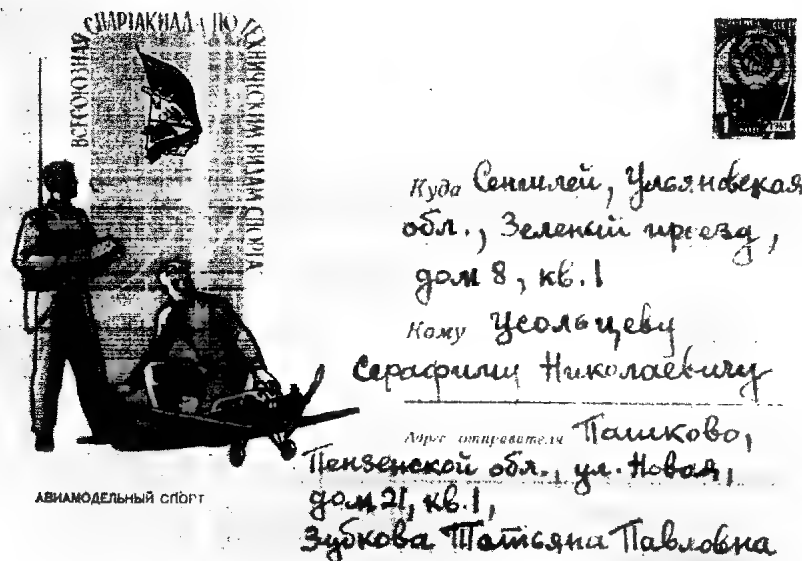 ВСЕСОЮЗНАЯ СПАРТАКИАДА ПО ТЕХНИЧЕСКИМ ВИДАМ СПОРТА
1961
Куда Сенгилей, Ульяновская
обл., Зеленый проезд,
дом 8, кв. 1
Кому Усольцеву
Серафиму Николаевичу
Адрес отправителя Пашково,
Пензенской обл., ул. Новая,
дом 21, кв. 1,
Зубкова Татьяна Павловна
АВИАМОДЕЛЬНЫЙ СПОРТ